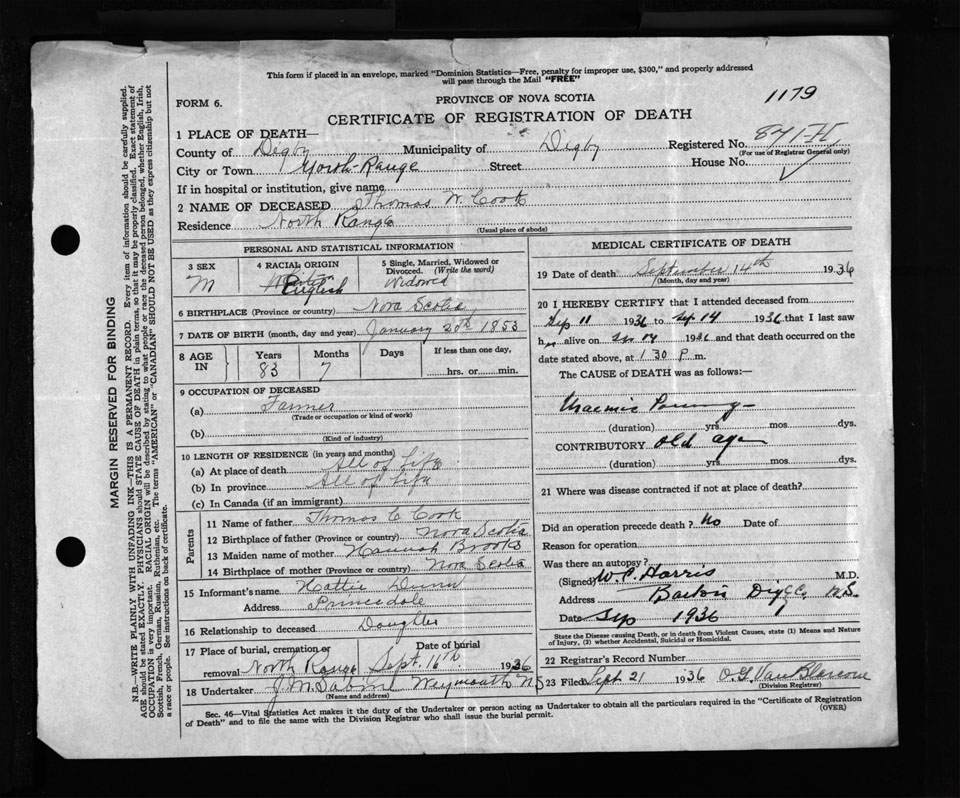 This form if placed in an envelope, marked "Dominion Statistics—Free, penalty for improper use, $300," and properly addressed
will pass through the Mail "FREE"
1179
FORM 6.
PROVINCE OF NOVA SCOTIA
CERTIFICATE OF REGISTRATION OF DEATH
1 PLACE OF DEATH—
County of Digby Municipality of Digby Registered No. 871-H
(For use of Registrar General only)
City or Town North Range Street House No.
If in hospital or institution, give name
2 NAME OF DECEASED Thomas W. Cook
Residence North Range
(Usual place of abode)
PERSONAL AND STATISTICAL INFORMATION
3 SEX 4 RACIAL ORIGIN 5 Single, Married, Widowed or Divorced. (Write the word)
M English Widowed
6 BIRTHPLACE (Province or country) Nova Scotia
7 DATE OF BIRTH (month, day and year) January 20th 1853
8 AGE IN Years Months Days If less than one day,
83 7 hrs. or min.
9 OCCUPATION OF DECEASED
(a) Farmer
(Trade or occupation or kind of work)
(b)
(Kind of industry)
10 LENGTH OF RESIDENCE (in years and months)
(a) At place of death All of Life
(b) In province All of Life
(c) In Canada (if an immigrant)
Parents
11 Name of father Thomas C Cook
12 Birthplace of father (Province or country) Nova Scotia
13 Maiden name of mother Hannah Brooks
14 Birthplace of mother (Province or country) Nova Scotia
15 Informant's name Hattie Dunn
Address Princedale
16 Relationship to deceased Daughter
17 Place of burial, cremation or removal North Range Date of burial Sept. 16th 1936
18 Undertaker J. M. Sabine Weymouth NS
(Name and address)
MEDICAL CERTIFICATE OF DEATH
19 Date of death September 14th 1936
(Month, day and year)
20 I HEREBY CERTIFY that I attended deceased from
Sep 11 1936 to Sep 14 1936 that I last saw
h alive on Sep 14 1936 and that death occurred on the
date stated above, at 1 30 P. m.
The CAUSE of DEATH was as follows:—
Uraemic
(duration) yrs mos dys.
CONTRIBUTORY old age
(duration) yrs mos. dys.
21 Where was disease contracted if not at place of death?
Did an operation precede death? No Date of
Reason for operation
Was there an autopsy?
(Signed) W. C. Harris M.D.
Address Barton Digby Co. N.S.
Date Sep 1936
State the Disease causing Death, or in death from Violent Causes, state (1) Means and Nature
of Injury, (2) whether Accidental, Suicidal or Homicidal.
22 Registrar's Record Number
23 Filed Sept 21 1936 O. G. Van Blarcom
(Division Registrar)
Sec. 46—Vital Statistics Act makes it the duty of the Undertaker or person acting as Undertaker to obtain all the particulars required in the "Certificate of Registration
of Death" and to file the same with the Division Registrar who shall issue the burial permit. (OVER)
MARGIN RESERVED FOR BINDING
N.B.—WRITE PLAINLY WITH UNFADING INK—THIS IS A PERMANENT RECORD. Every item of information should be carefully supplied.
AGE should be stated EXACTLY. PHYSICIANS should STATE CAUSE OF DEATH in plain terms, so that it may be properly classified. Exact statement of
OCCUPATION is very important. RACIAL ORIGIN will be described by stating to what people or race the deceased person belonged, whether English, Irish,
Scottish, French, German, Russian, Ruthenian, etc. The terms "AMERICAN" or "CANADIAN" SHOULD NOT BE USED as they express citizenship but not
a race or people. See instructions on back of certificate.